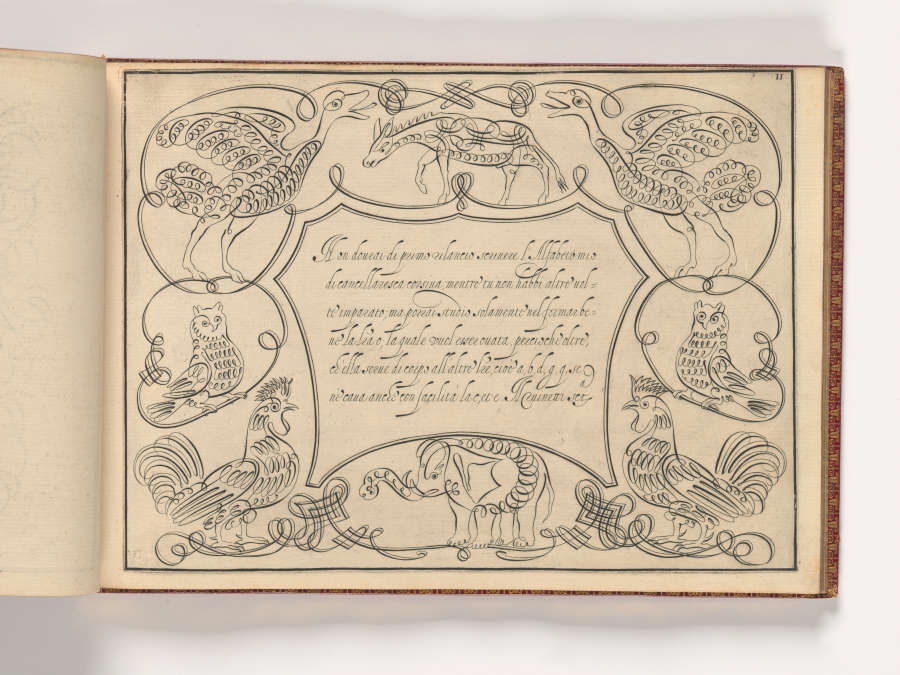 11
Non dourai di primo slancio scriuere l'Alfabeto mio
di cancellaresca corsiua, mentre tu non habbi altre uol-
te imparato; ma porrai studio solamente nel formar be-
ne la lrã o, la quale vuol essere ouata, percioche oltre,
ch'ella serue di corpo all'altre lrẽ, cioè a, b, d, g, q, se
ne caua anche con facilità la c, et e.